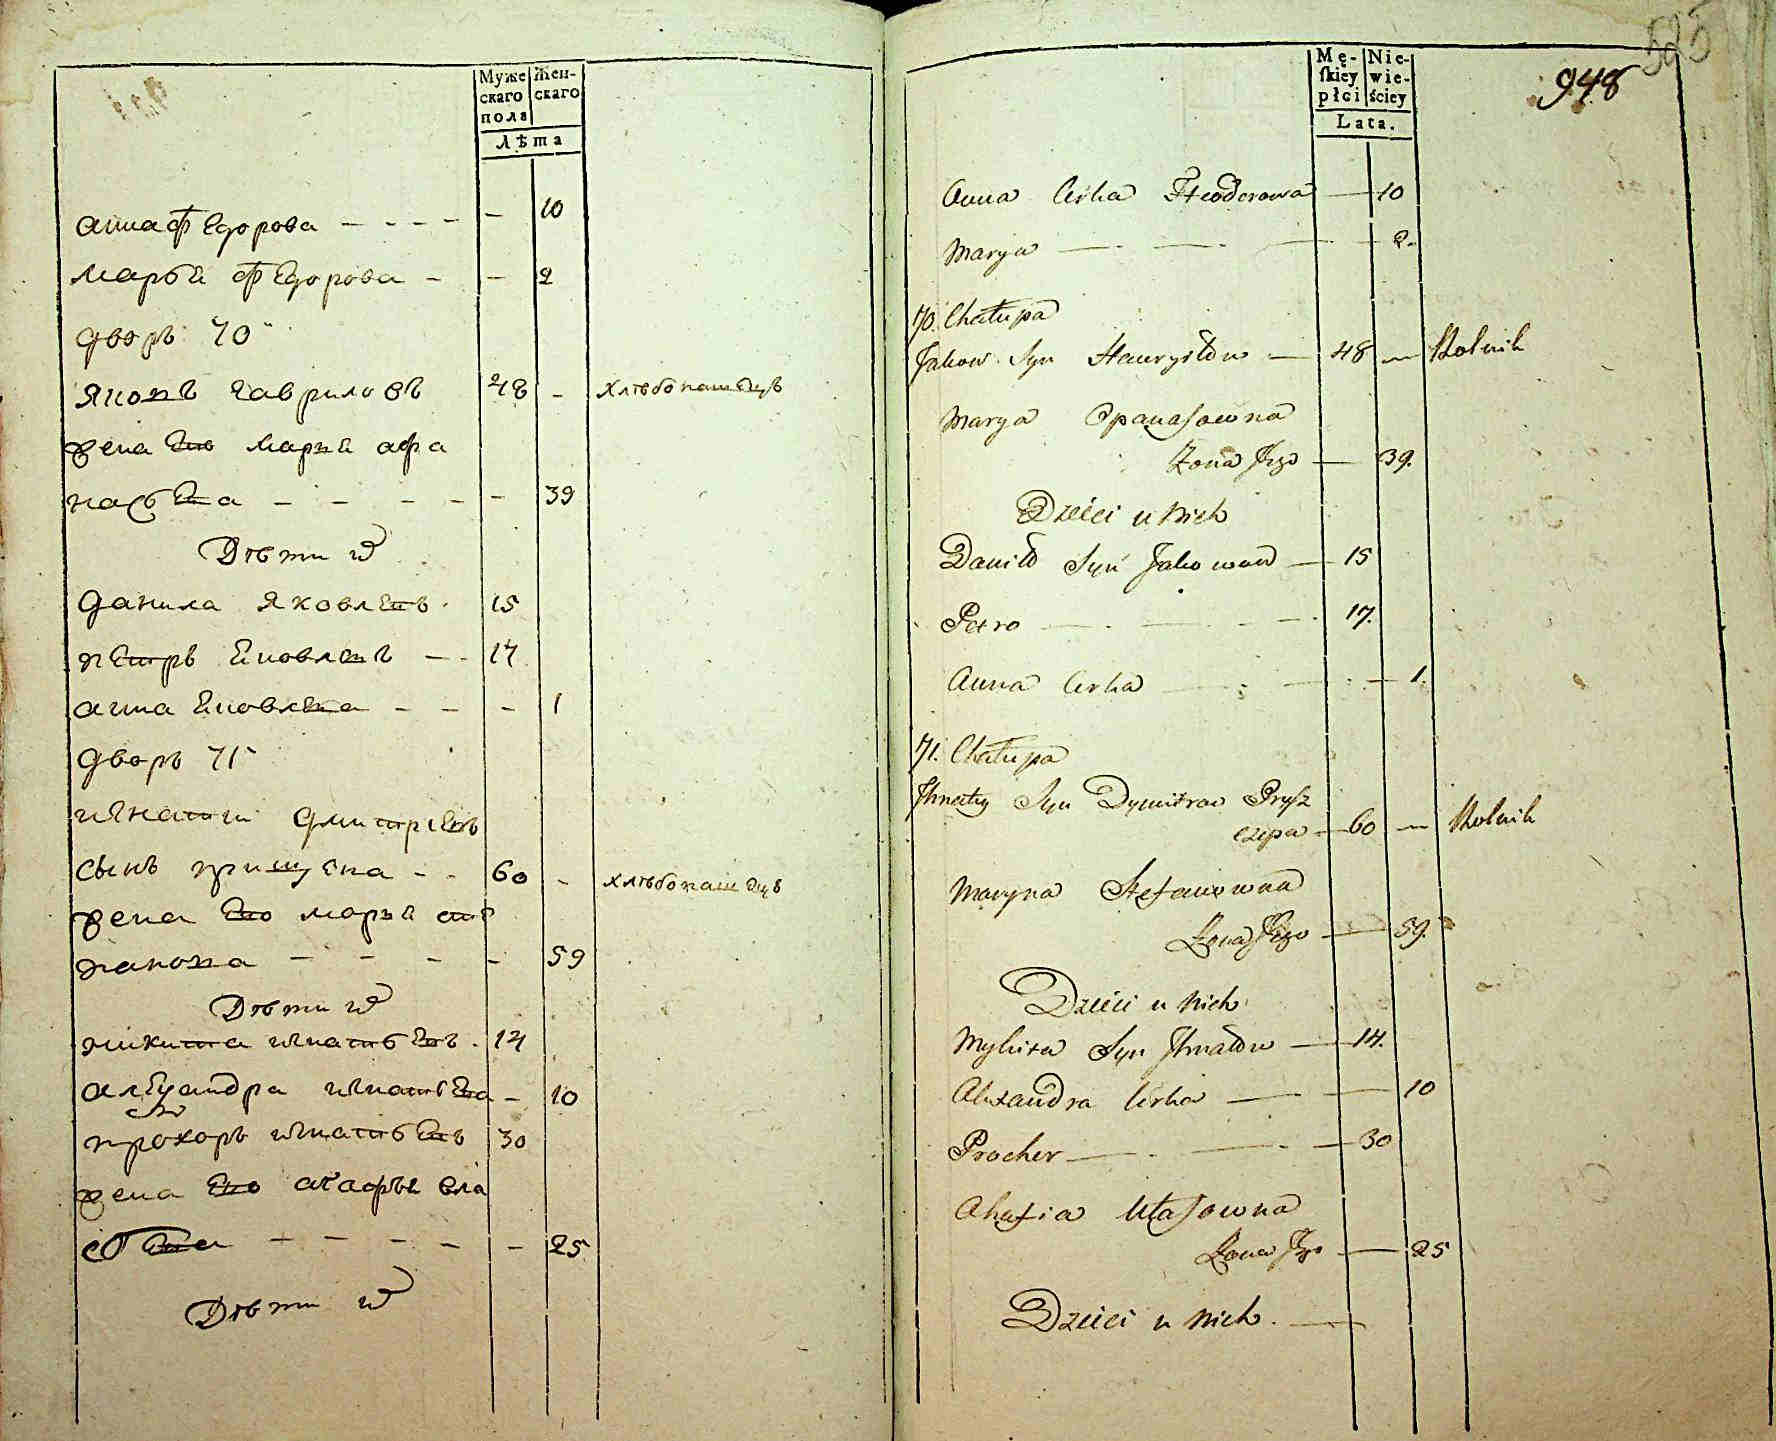 Муже
скаго
пола
Жен-
скаго
Лѣта
анна Федорова - - - - - 10
марья Федорова - - 2
дворъ 70
яковъ гавриловъ 48 - хлѣбопашецъ
жена ево марья афа
насьева - - - - - 39
Дѣти их
данила яковлевъ 15
петръ яковлевъ - - 17
анна яковлева - - - 1
дворъ 71
игнатий дмитриевъ
сынъ прищепа - - 60 - хлѣбопашецъ
жена ево марья сте
панова - - - - 59
Дѣти их
никита игнатьевъ 14
александра игнатьева - 10
прохоръ игнатьевъ 30
жена ево агафья вла
сьева - - - - - 25
Дѣти их
525
948
Mę-
skiey
płci
Nie-
wie-
ściey
Lata.
Anna Córka Fteodorowa — 10
Marya — — — 2.
70. Chałupa
Jakow Syn Hawryłów — 48 — Rolnik
Marya Opanasowna
Żona Jego — 39.
Dzieci u Nich
Daniło Syn Jakowow — 15
Petro — — — 17.
Anna Córka — — — 1.
71. Chałupa
Ihnaty Syn Dymitrow Prysz
czepa — 60 — Rolnik
Maryna Stefanowna
Żona Jego — 59.
Dzieci u Nich
Mykita Syn Ihnatow — 14.
Alexandra Córka — — 10
Procher — — — 30
Ahafia Ułasowna
Żona Jego — 25
Dzieci u Nich. —